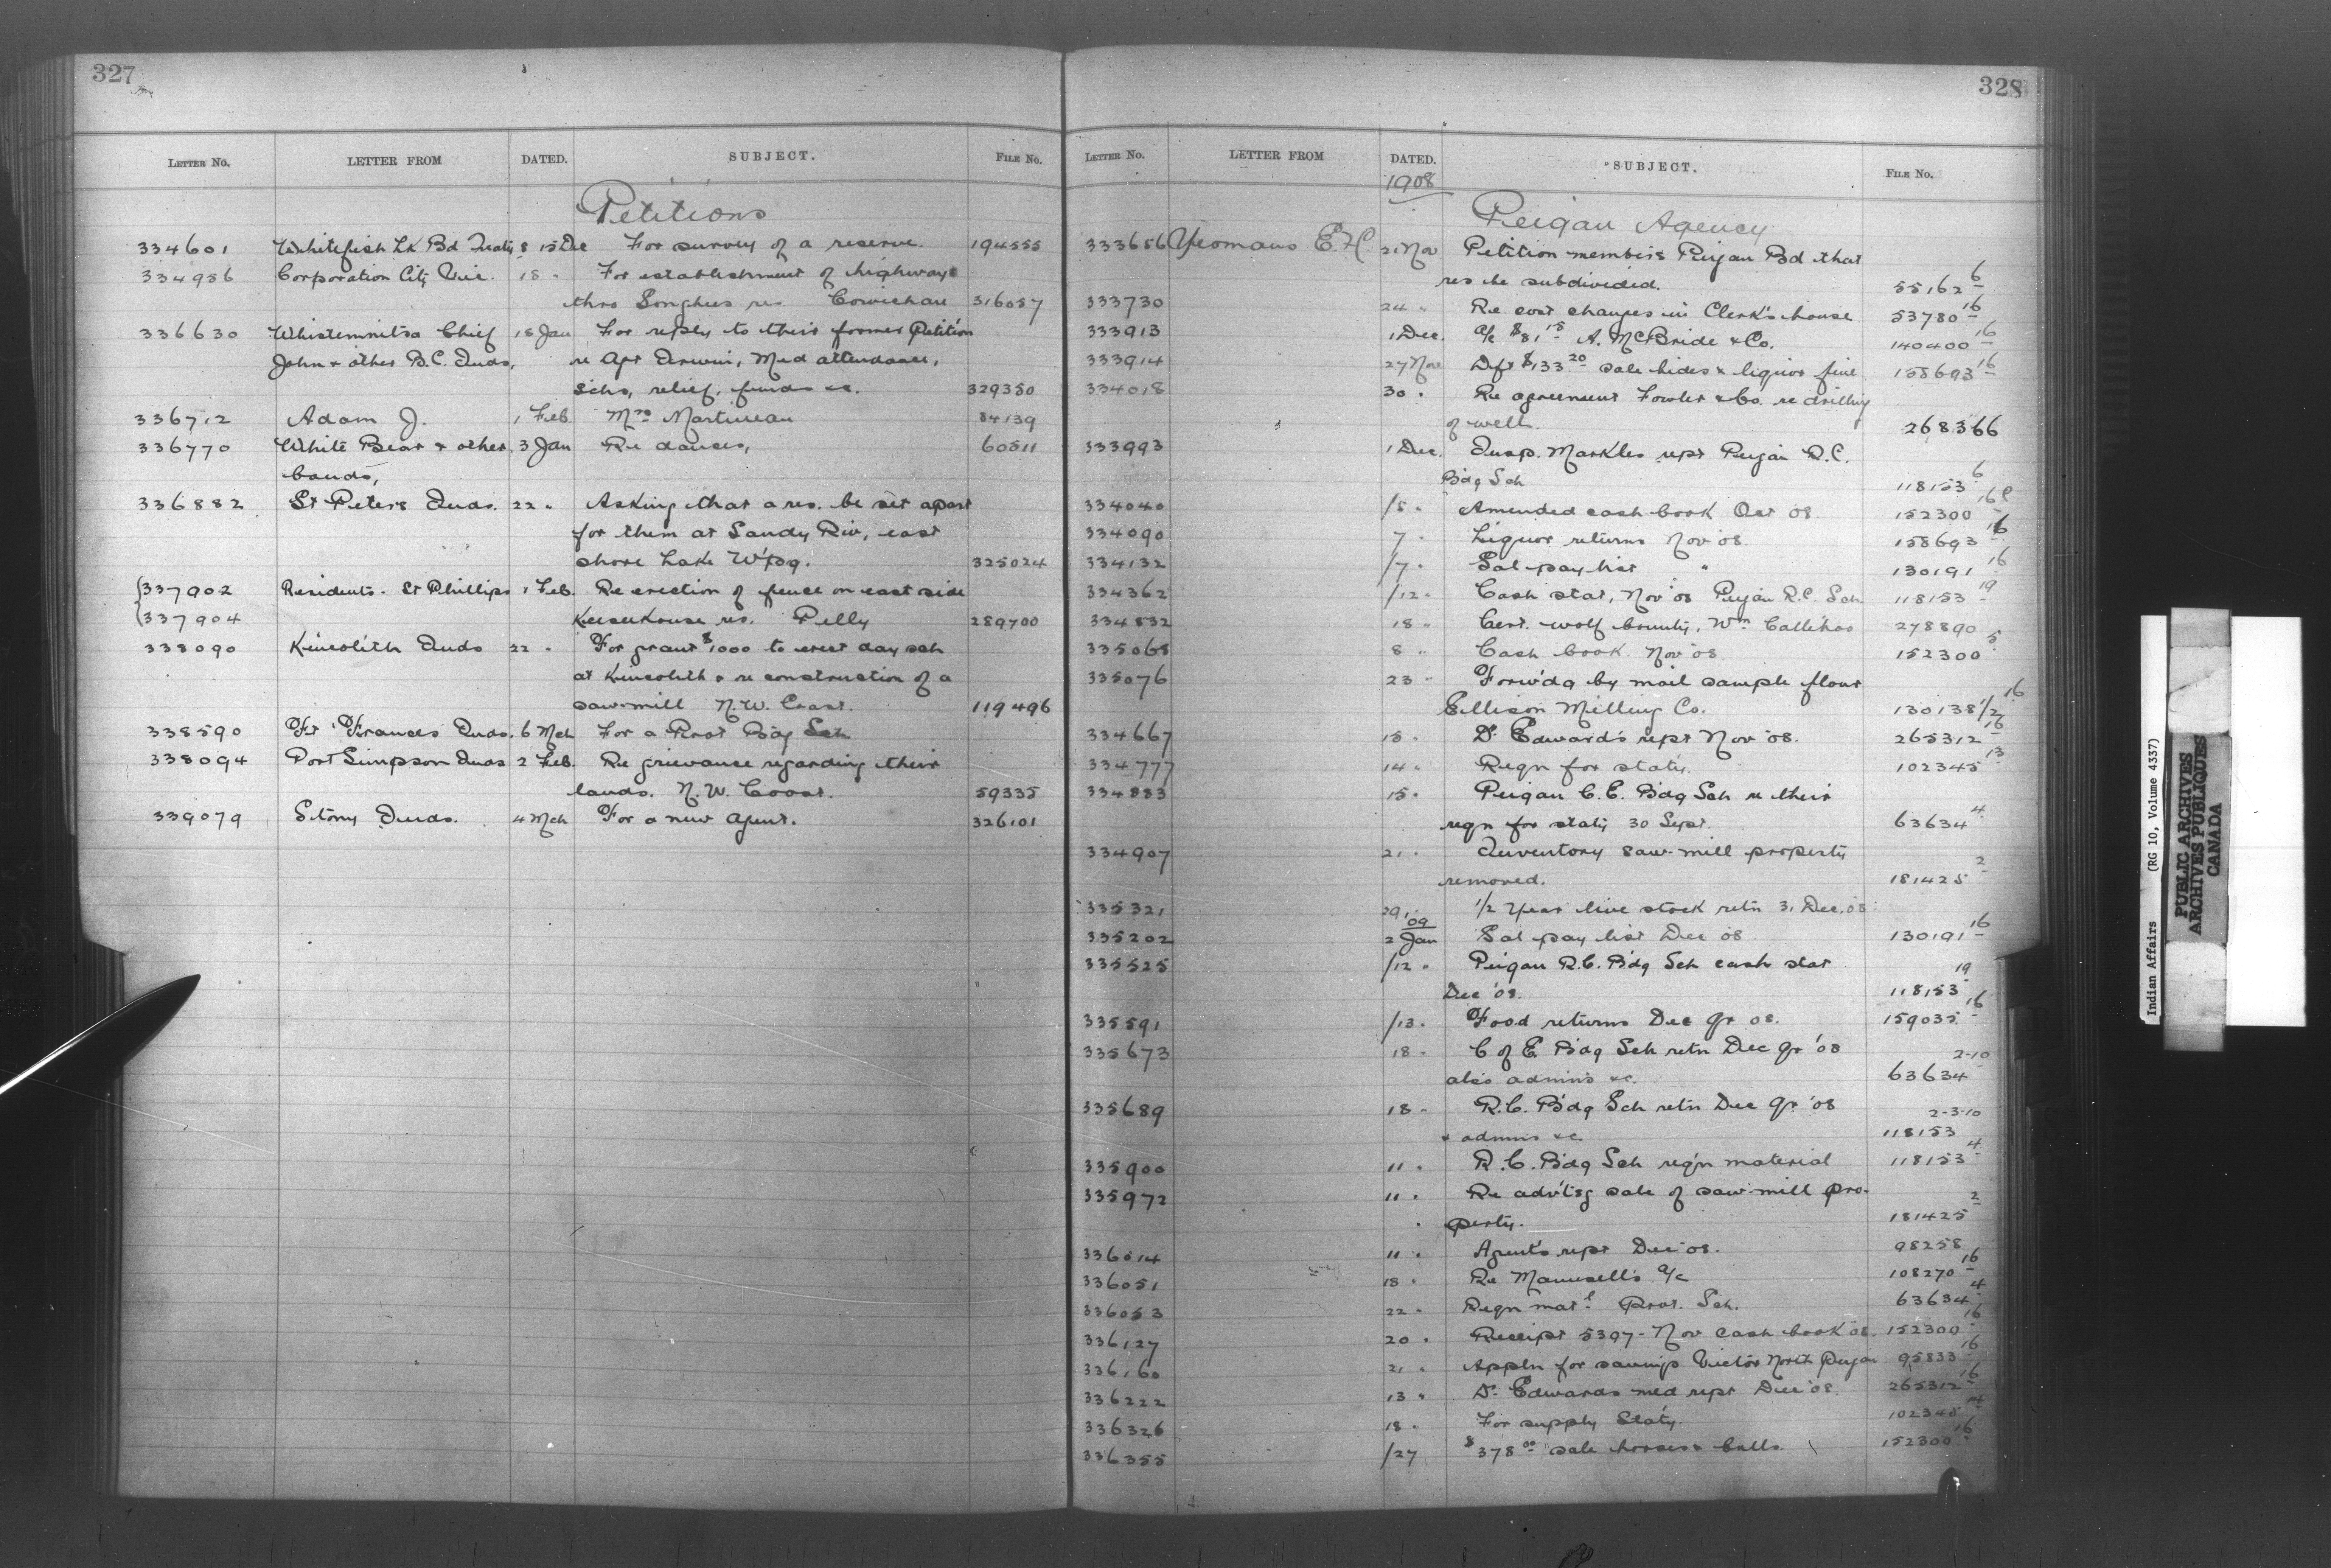 327
LETTER No. LETTER FROM DATED. SUBJECT. FILE No.
Petitions
334601 Whitefish Lk Bd Treaty 8 15 Dec For survey of a reserve. 194555
334986 Corporation City Vic. 18 " For establishment of highways
thro Songhees res. Cowichan 316057
336630 Whistemnitsa Chief 18 Jan For reply to their former Petition
John & other B.C. Inds, re Agt Irwin, Med attendance,
schs, relief, funds &c. 329350
336712 Adam J. 1 Feb. Mrs Martineau 84139
336770 White Bear & other 3 Jan Re dances, 60511
bands,
336882 St Peters Inds. 22 " Asking that a res. be set apart
for them at Sandy Riv, east
shore Lake W'pg. 325024
337902 Residents - St Phillips 1 Feb. Re erection of fence on east side
337904 Keesekouse res. Pelly 289700
338090 Kincolith Inds 22 " For grant $1000 to erect day sch
at Kincolith & re construction of a
saw-mill N.W. Coast. 119496
338590 Ft Frances Inds. 6 Mch For a Prot Bdg Sch
338094 Port Simpson Inds 2 Feb. Re grievance regarding their
lands. N.W. Coast. 59335
339079 Stony Inds. 4 Mch For a new agent. 326101
328
LETTER No. LETTER FROM DATED. SUBJECT. FILE No.
1908
Peigan Agency
333656 Yeomans E.H. 21 Nov Petition members Peigan Bd that
res be subdivided. 55162 6
333730 24 " Re cost changes in Clerk's house 53780 16
333913 1 Dec. a/c $81.15 A. McBride & Co. 140400 16
333914 27 Nov Dft $133.20 sale hides & liquor fine 158693 16
334018 30 " Re agreement Fowler & Co. re drilling
of well. 268366
333993 1 Dec. Insp. Markles rept Peigan R.C.
Bdg Sch 118153 6
334040 /5 " Amended cash book Oct 08. 152300 16
334090 7 " Liquor returns Nov '08. 158693 16
334132 /7 " Sal pay list " 130191 16
334362 /12 " Cash stat, Nov '08 Peigan R.C. Sch. 118153 19
334832 18 " Cert. wolf bounty, Wm Callihoo 278890
335068 8 " Cash book Nov '08. 152300 5
335076 23 " Forw'dg by mail sample flour
Ellison Milling Co. 130138 1/2 16
334667 15 " Dr Edward's rept Nov '08. 265312 16
334777 14 " Reqn for staty. 102345 13
334883 15 " Peigan C.E. Bdg Sch re their
reqn for staty 30 Sept. 63634 4
334907 21 " Inventory saw-mill property
removed. 181425 2
335321 29 " 1/2 Year live stock retn 31 Dec. 08
09
335202 2 Jan Sal pay list Dec '08 130191 16
335525 /12 " Peigan R.C. Bdg Sch cash stat
Dec '08. 118153 19
335591 /13 " Food returns Dec qr 08. 159035 16
335673 18 " C of E Bdg Sch retn Dec qr '08
also admns &c. 63634 2-10
335689 18 " R.C. Bdg Sch retn Dec qr '08
& admns &c. 118153 2-3-10
335900 11 " R.C. Bdg Sch reqn material 118153 4
335972 11 " Re advtsg sale of saw-mill pro-
perty. 181425 2
336014 11 " Agent's rept Dec '08. 98258
336051 18 " Re Maunsell's a/c 108270 16
336053 22 " Reqn matl Prot. Sch. 63634 4
336127 20 " Receipt 5397 - Nov cash book 08. 152300 16
336160 21 " Appln for savings Victor North Peigan 95833 16
336222 13 " Dr Edwards med rept Dec '08. 265312 16
336326 18 " For supply Staty. 102345 14
336355 /27 $378.00 sale horses & bulls. 152300 16
Indian Affairs (RG 10, Volume 4337)
PUBLIC ARCHIVES
ARCHIVES PUBLIQUES
CANADA